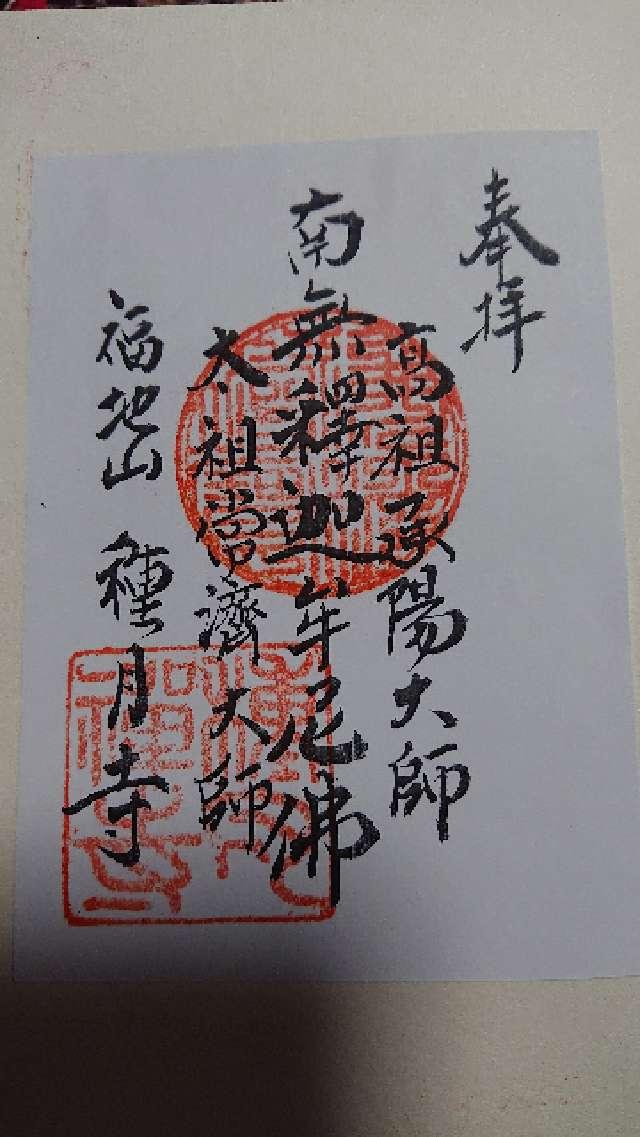 奉拝
高祖承陽大師
南無釋迦牟尼佛
太祖常濟大師
福地山 種月寺